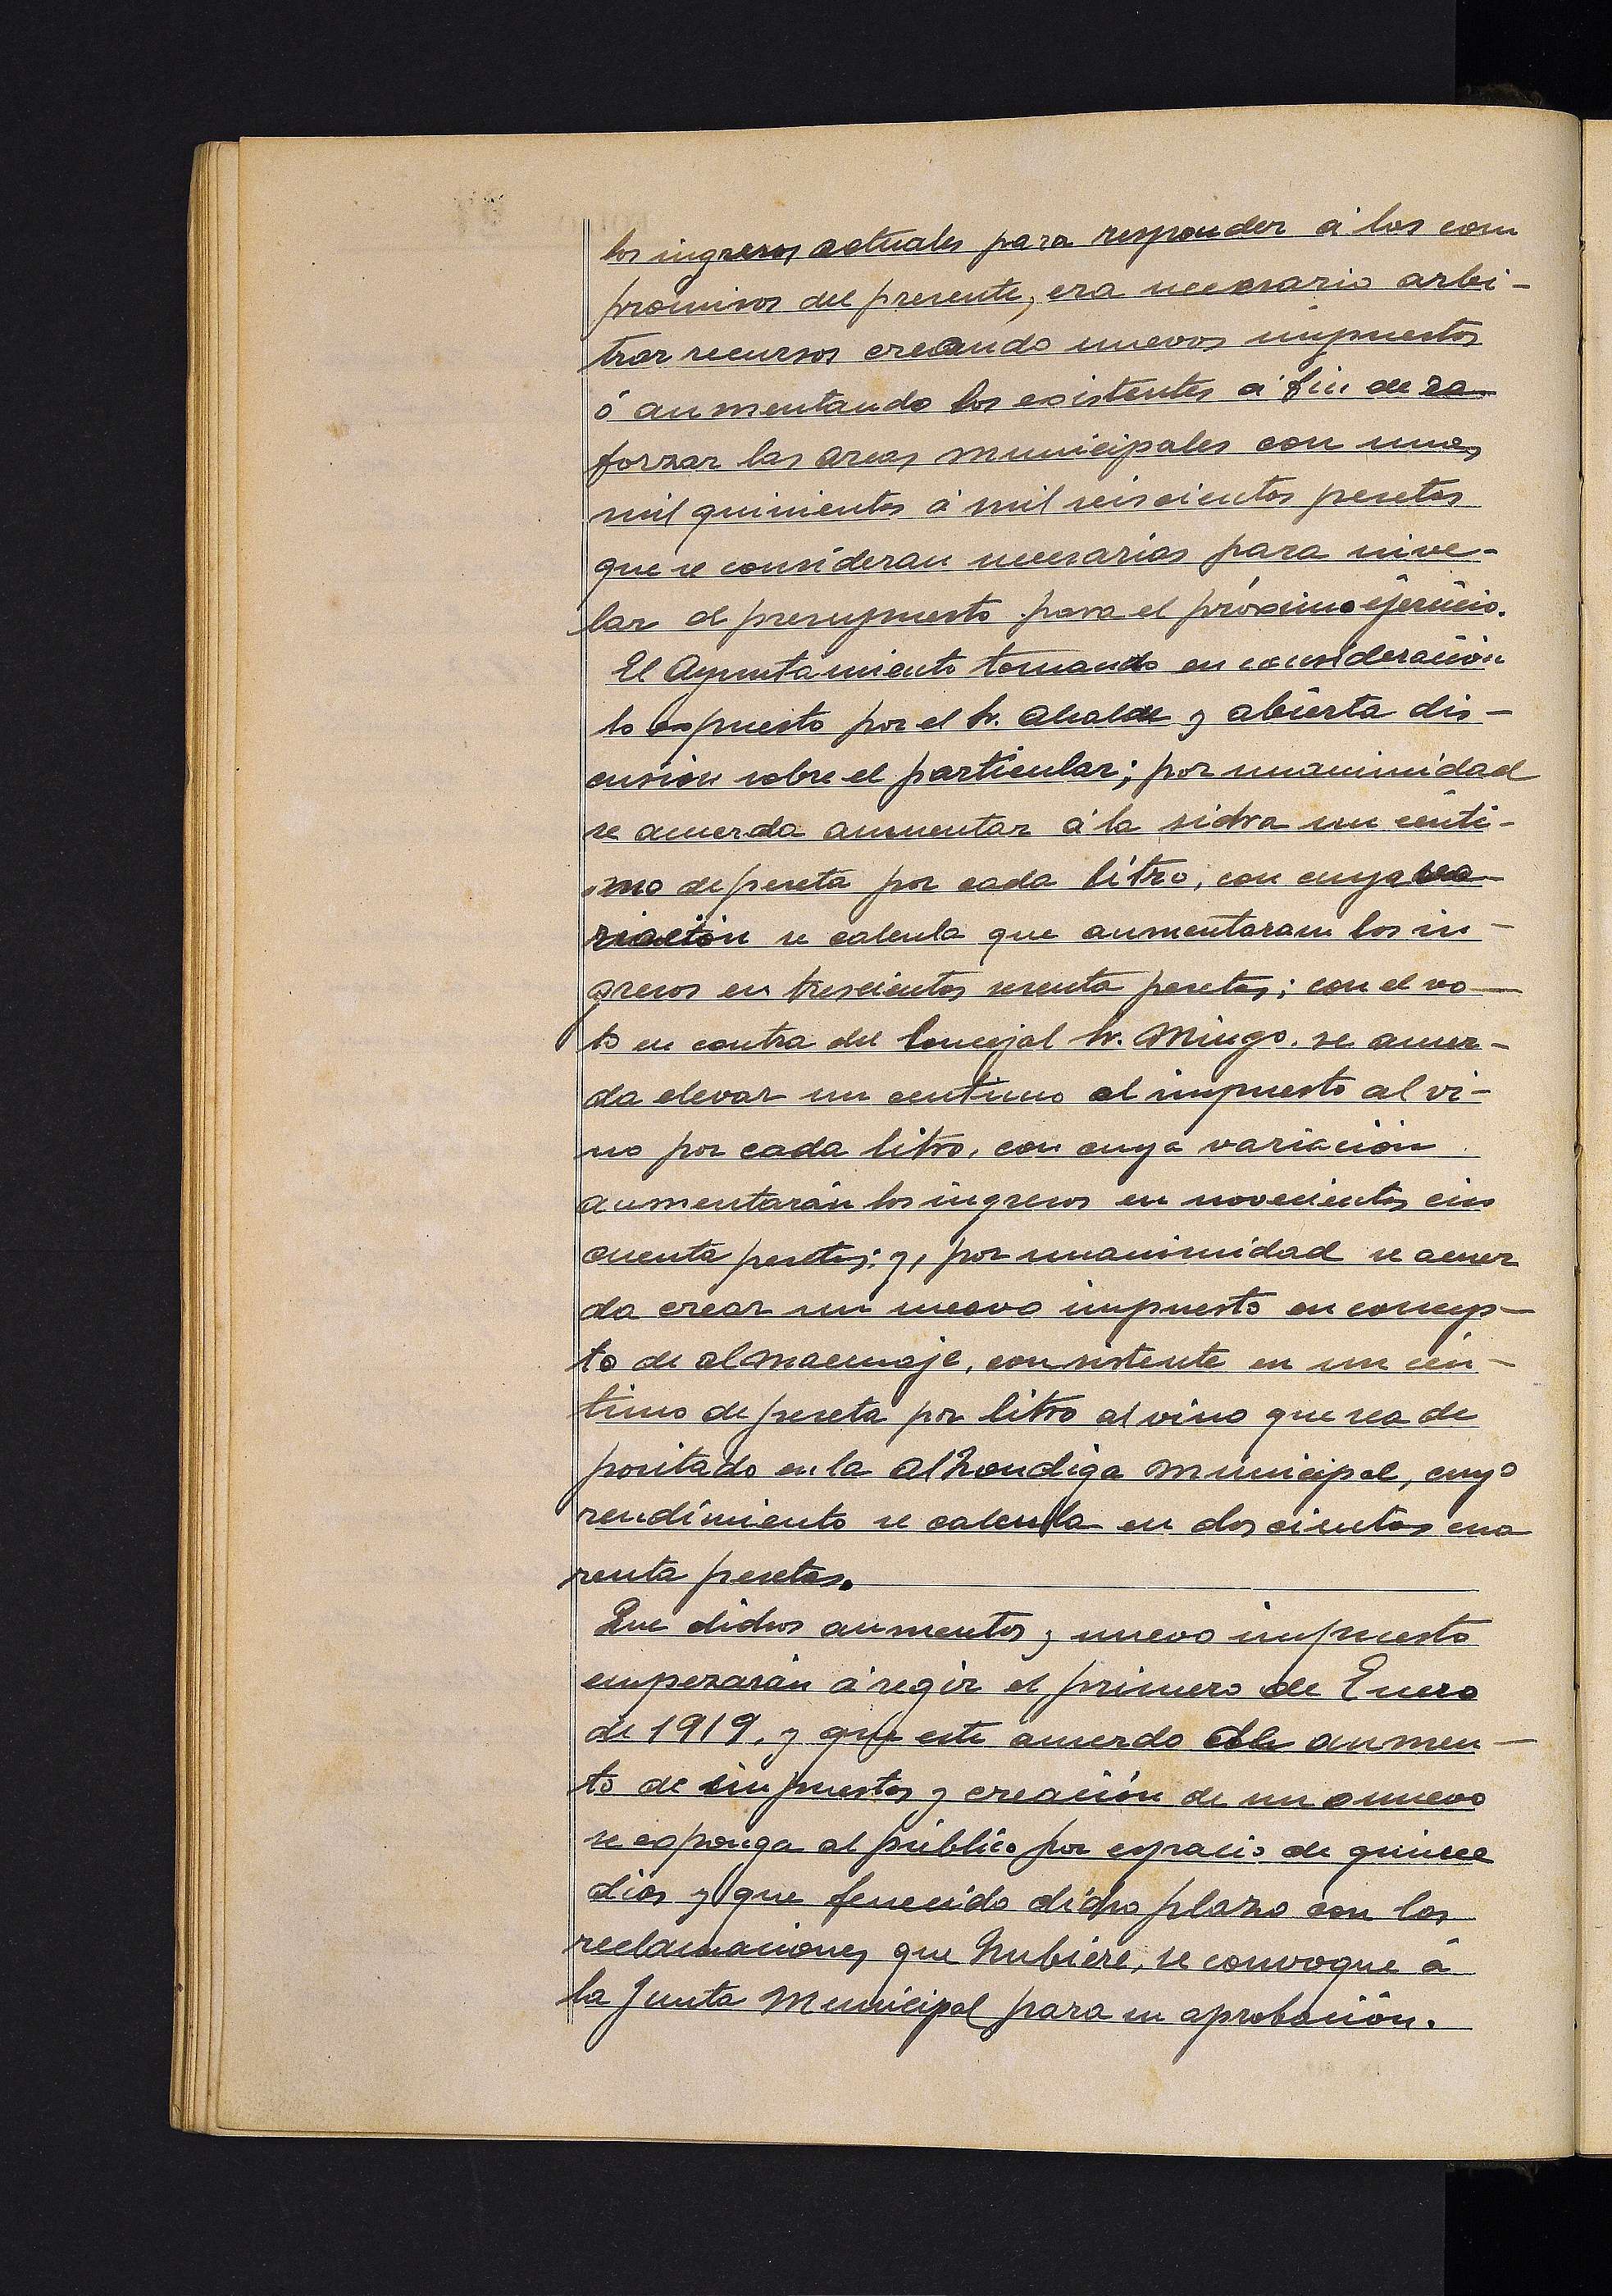 los ingresos actuales para responder á los com
promisos del presente, era necesario arbi-
trar recursos creando nuevos impuestos
ó aumentando los existentes á fin de re-
forzar las arcas municipales con unas
mil quinientas á mil seiscientas pesetas
que se consideran necesarias para nive-
lar el presupuesto para el próximo ejercicio.
El Ayuntamiento tomando en consideración
lo expuesto por el Sr. Alcalde y abierta dis-
cusión sobre el particular; por unanimidad
se acuerda aumentar á la sidra un cénti-
mo de peseta por cada litro, con cuya va-
riación se calcula que aumentaran los in-
gresos en trescientas sesenta pesetas; con el vo-
to en contra del Concejal Sr. Mingo. se acuer-
da elevar un centimo el impuesto al vi-
no por cada litro, con cuya variación
aumentarán los ingresos en novecientas cin
cuenta pesetas; y, por unanimidad se acuer
da crear un nuevo impuesto en concep-
to de almacenaje, consistente en un cén-
timo de peseta por litro al vino que sea de
positado en la alhondiga municipal, cuyo
rendimiento se calcula en doscientas cua
renta pesetas.
Que dichos aumentos y nuevo impuesto
empezarán á regir el primero de Enero
de 1919, y que este acuerdo de aumen-
to de impuestos y creación de uno nuevo
se exponga al público por espacio de quince
dias y que fenecido dicho plazo con las
reclamaciones que hubiere, se convoque á
la Junta Municipal para su aprobación.